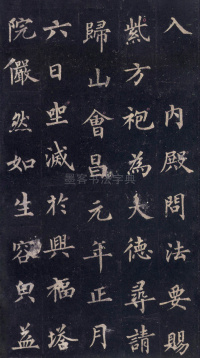 入內殿問法要賜
紫方袍為大德尋請
歸山會昌元年正月
六日坐滅於興福塔
院儼然如生容與益
墨客书法字典